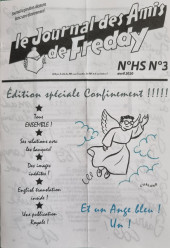 le Journal des Amis
de Freddy
N°HS N°3
avril 2020
Édition spéciale Confinement !!!!!
Tous
ENSEMBLE !
Ses relations avec
les banques!
Des images
inédites !
English translation
inside !
Une publication
Royale !
Et un Ange bleu !
Un !